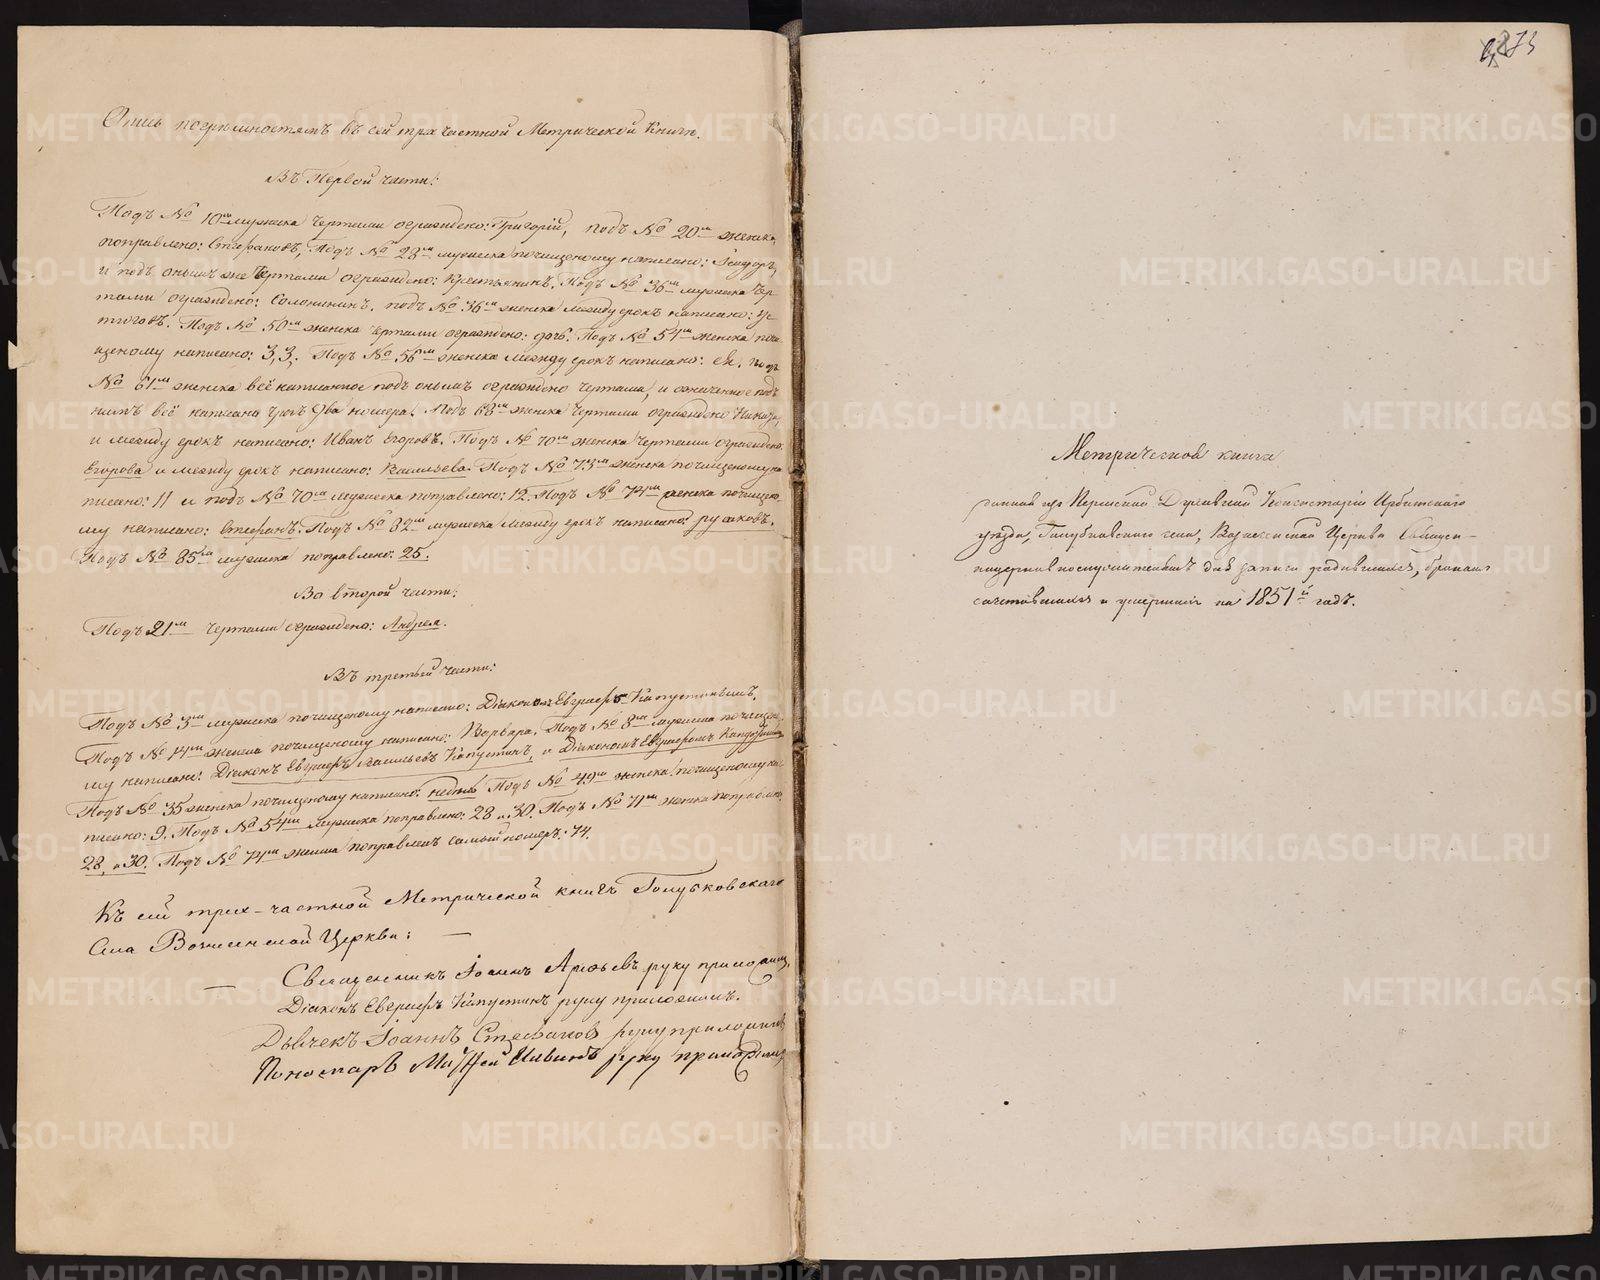 Опись погрешностямъ въ сей трехчастной Метрической Книгѣ.
Въ Первой части:
Подъ № 10мъ мужеска чертами ограждено: Григорій, подъ № 20мъ женска
поправлено: Стефановъ, Подъ № 28мъ мужеска почищеному написано:
и подъ онымъ же чертами ограждено: Крестьянинъ. Подъ № 36мъ мужеска чер-
тами ограждено: Солонининъ. подъ № 36мъ женска между срокъ написано: Ус-
тюговъ. Подъ № 50мъ женска чертами ограждено: дочь. Подъ № 54мъ женска почи-
щеному написано: 3,3. Подъ № 56мъ женска между срокъ написано: подъ
№ 61мъ женска всё написанное подъ онымъ ограждено чертами, и означенное подъ
нимъ всё написано чрезъ два номера. Подъ 68мъ женска чертами ограждено
и между срокъ написано: Иванъ Егоровъ. Подъ № 70мъ женска чертами ограждено:
Егорова и между срокъ написано: Васильева. Подъ № 73мъ женска почищеному на-
писано: 11 и подъ № 70мъ мужеска поправлено: 12. Подъ № 74мъ женска почищено-
му написано: Стефанъ. Подъ № 82мъ мужеска между срокъ написано:
Подъ № 85мъ мужеска поправлено: 25.
Во второй части:
Подъ 21мъ чертами ограждено: Андрея.
Въ третьей части:
Подъ № 3мъ мужеска почищеному написано: Діаконъ Евграфъ Капустинымъ,
Подъ № женска почищеному написано: Варвара. Подъ № 8мъ мужеска почищено-
му написано: Діаконъ Евграфъ Васильевъ Капустинъ, и Діакономъ Евграфомъ
Подъ № 35 женска почищеному написано: Подъ № 49мъ женска почищеному на-
писано: 9. Подъ № 54мъ мужеска поправлено: 28 и 30. Подъ № 71мъ женска поправлено:
28, и 30. Подъ № 74мъ женска поправленъ самый номеръ: 74.
Къ сей трех-частной Метрической книгѣ Голубковскаго
Села Вознесенской Церкви: —
— Священникъ Іоаннъ руку приложилъ,
Діаконъ Евграфъ Капустинъ руку приложилъ.
Дьячекъ Іоаннъ Стефановъ руку приложилъ
Пономарь Матѳей руку приложилъ
273
Метрическая книга
данная изъ Пермской Духовной Консисторіи Ирбитскаго
уѣзда, Голубковскаго села, Вознесенской Церкви Священ-
ноцерковнослужителямъ для записи родившихся, бракомъ
сочетавшихся и умершихъ на 1851й годъ.
METRIKI.GASO-URAL.RU